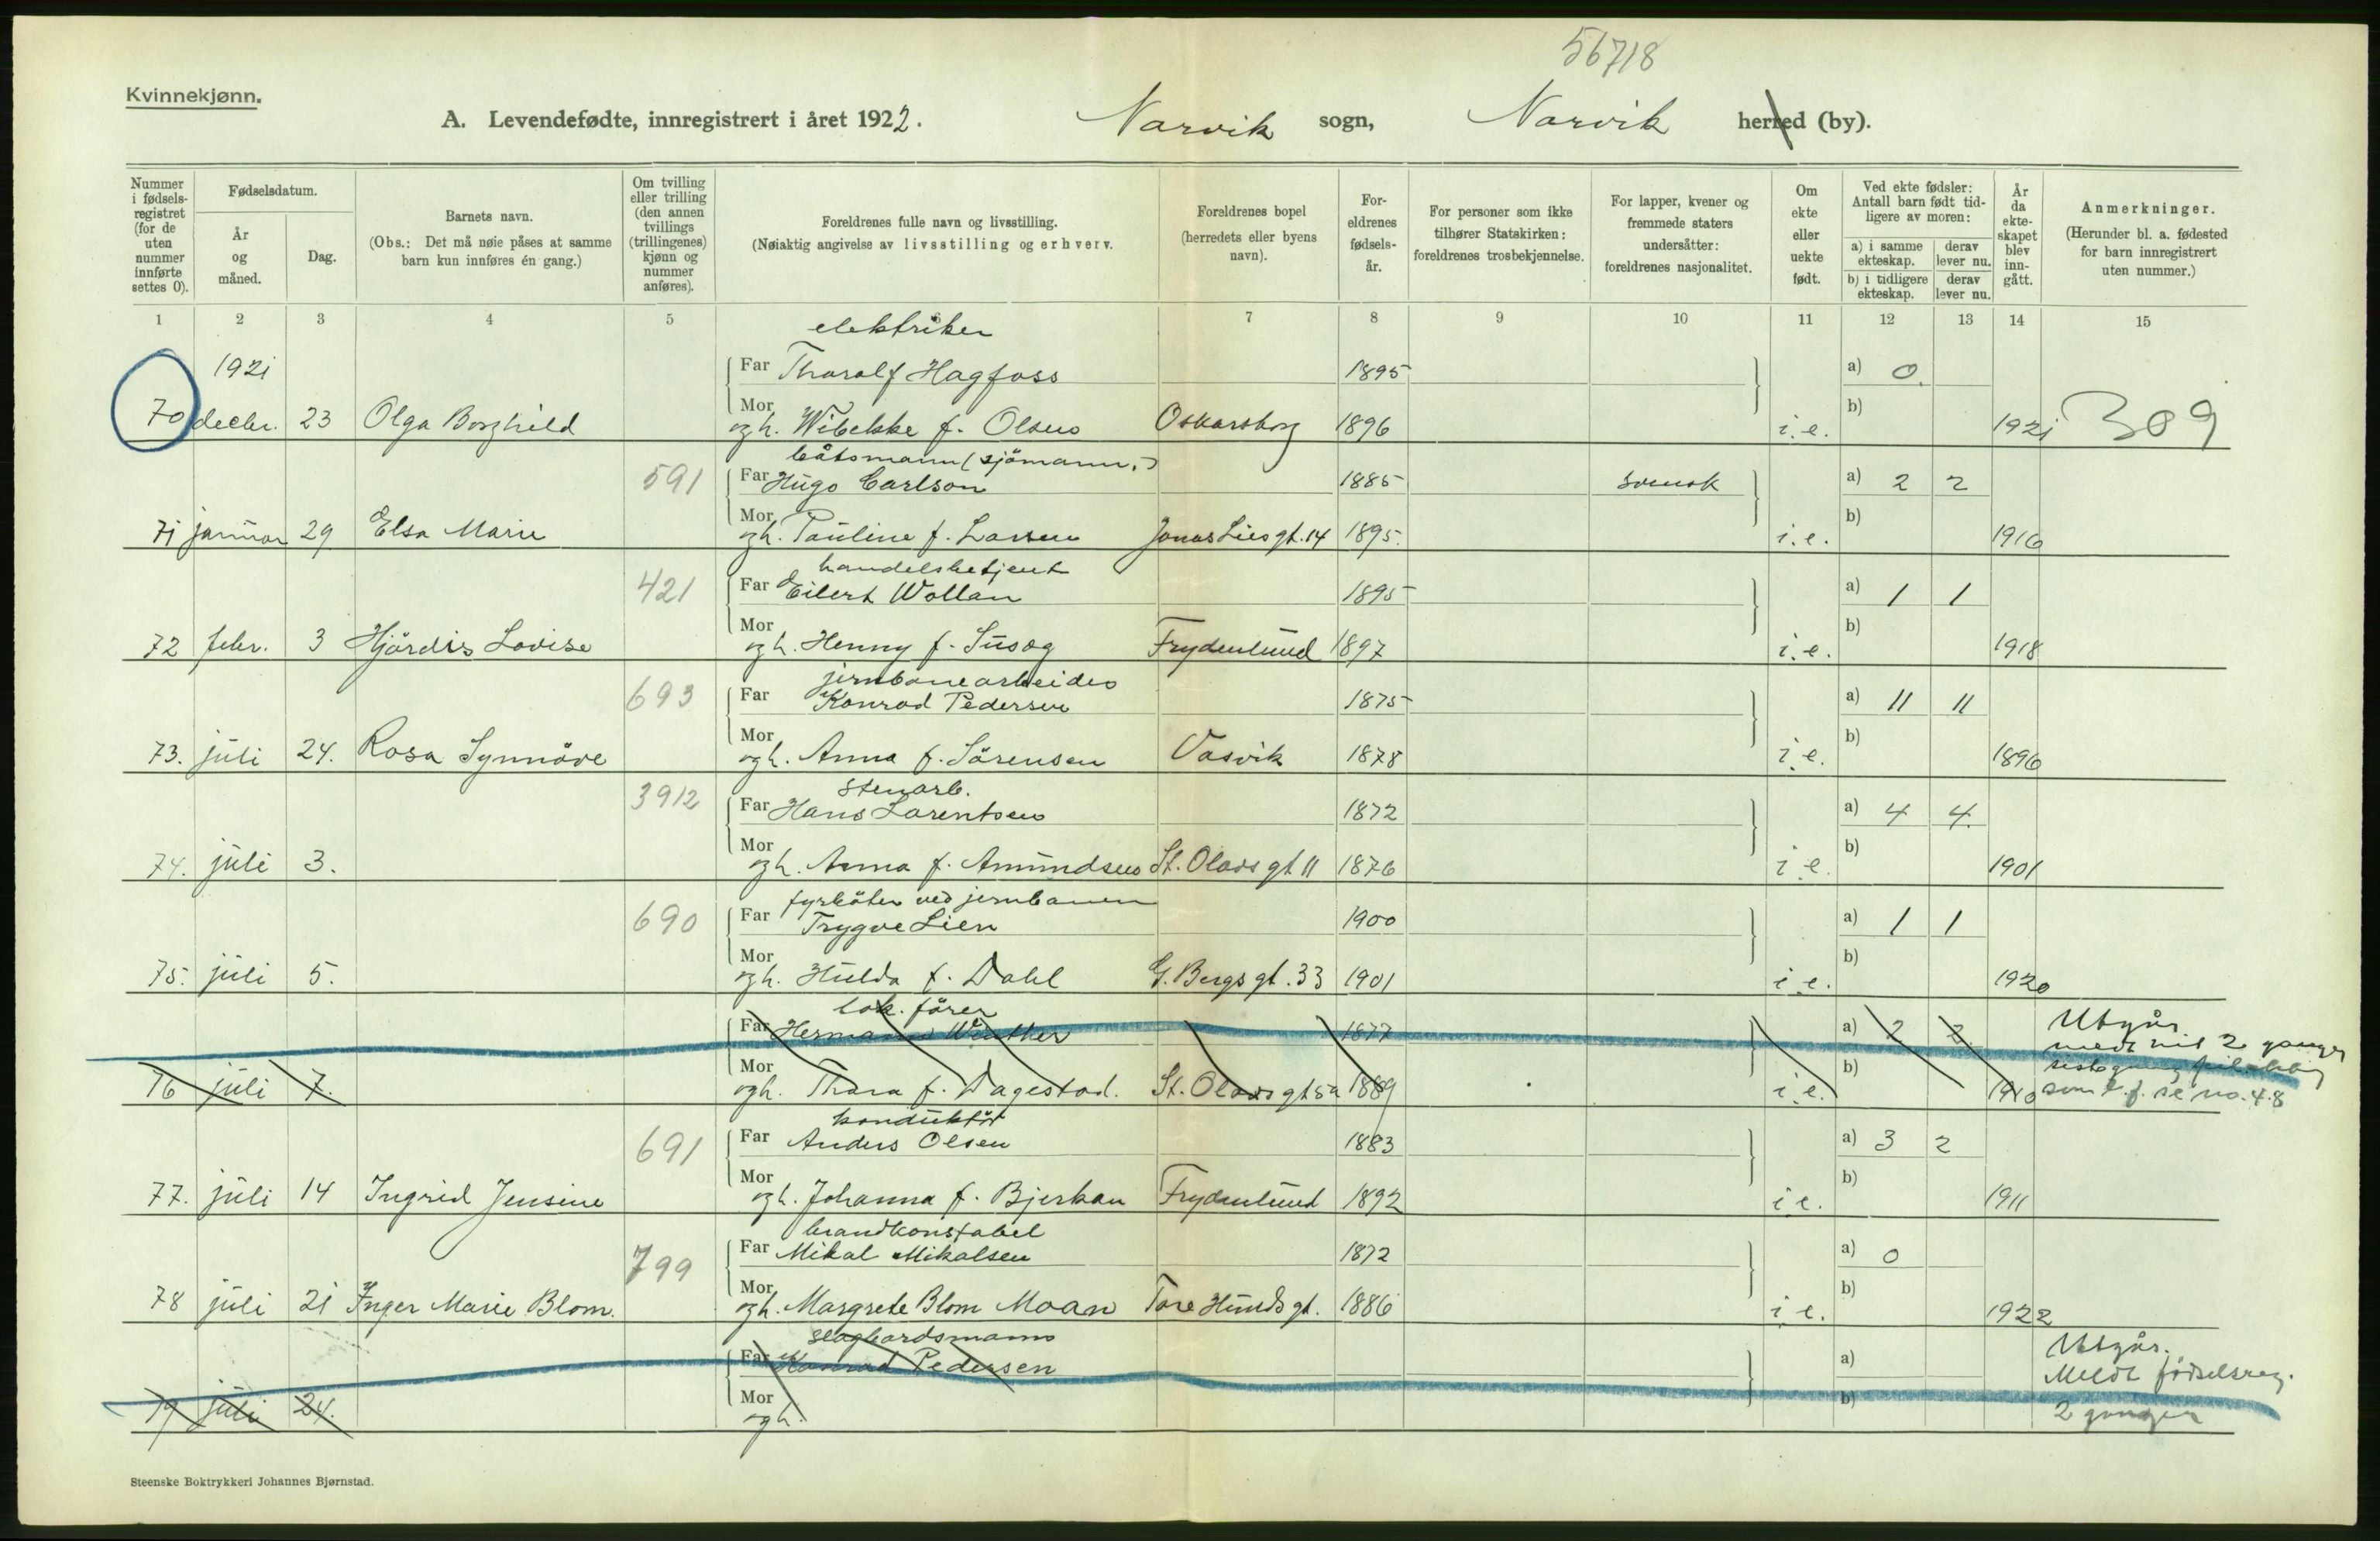 56718
Kvinnekjønn.
A. Levendefødte, innregistrert i året 1922. Narvik sogn, Narvik herred (by).
Nummer i fødselsregistret (for de uten nummer innførte settes 0).
Fødselsdatum.
År og måned.
Dag.
Barnets navn.
(Obs.: Det må nøie påses at samme barn kun innføres én gang.)
Om tvilling eller trilling (den annen tvillings (trillingenes) kjønn og nummer anføres).
Foreldrenes fulle navn og livsstilling.
(Nøiaktig angivelse av livsstilling og erhverv.
Foreldrenes bopel (herredets eller byens navn).
Foreldrenes fødselsår.
For personer som ikke tilhører Statskirken: foreldrenes trosbekjennelse.
For lapper, kvener og fremmede staters undersåtter: foreldrenes nasjonalitet.
Om ekte eller uekte født.
Ved ekte fødsler: Antall barn født tidligere av moren:
a) i samme ekteskap. derav lever nu.
b) i tidligere ekteskap. derav lever nu.
År da ekteskapet blev inngått.
Anmerkninger.
(Herunder bl. a. fødested for barn innregistrert uten nummer.)
1 2 3 4 5 6 7 8 9 10 11 12 13 14 15
elektriker
1921 Far Thoralf Hagfoss 1895 a) 0
70 decbr. 23 Olga Borghild Mor og h. Wibekke f. Olsen Oskarsborg 1896 i. e. b) 1921 309
båtsmann (sjömann.)
591 Far Hugo Carlson 1885 svensk a) 2 2
71 januar 29 Elsa Marie Mor og h. Pauline f. Larsen Jonas Lies gt. 14 1895. i. e. b) 1916
handelsbetjent
421 Far Eilert Wollan 1895 a) 1 1
72 febr. 3 Hjördis Lovise Mor og h. Henny f. Susæg Frydenlund 1897 i. e. b) 1918
jernbanearbeider
693 Far Konrad Pedersen 1875 a) 11 11
73. juli 24. Rosa Synnöve Mor og h. Anna f. Sörensen Vasvik 1878 i. e. b) 1896
stenarb.
3912 Far Hans Larentsen 1872 a) 4 4.
74. juli 3. Mor og h. Anna f. Amundsen St. Olavs gt 11 1876 i e. b) 1901
fyrböter ved jernbanen
690 Far Trygve Lien 1900 a) 1 1
75. juli 5. Mor og h. Hulda f. Dahl G. Bergs gt. 33 1901 i e. b) 1920
lok. förer
Far Hermann Winther 1877 a) 2 2 Utgår.
76 juli 7. Mor og h. Thora f. Dagestad. St. Olavs gt 5a 1889 i e. b) 1910 2 ganger
som l. f. se no. 48
konduktör
691 Far Anders Olsen 1883 a) 3 2
77. juli 14 Ingrid Jensine Mor og h. Johanna f. Bjerkan Frydenlund 1892 i e. b) 1911
brandkonstabel
799 Far Mikal Mikalsen 1872 a) 0
78 juli 21 Inger Marie Blom. Mor og h. Margrete Blom Moan Tore Hunds gt. 1886 i e. b) 1922
Far Konrad Pedersen a) Utgår.
79 juli 24. Mor og h. b) Meldt fødselsreg.
2 ganger
Steenske Boktrykkeri Johannes Bjørnstad.